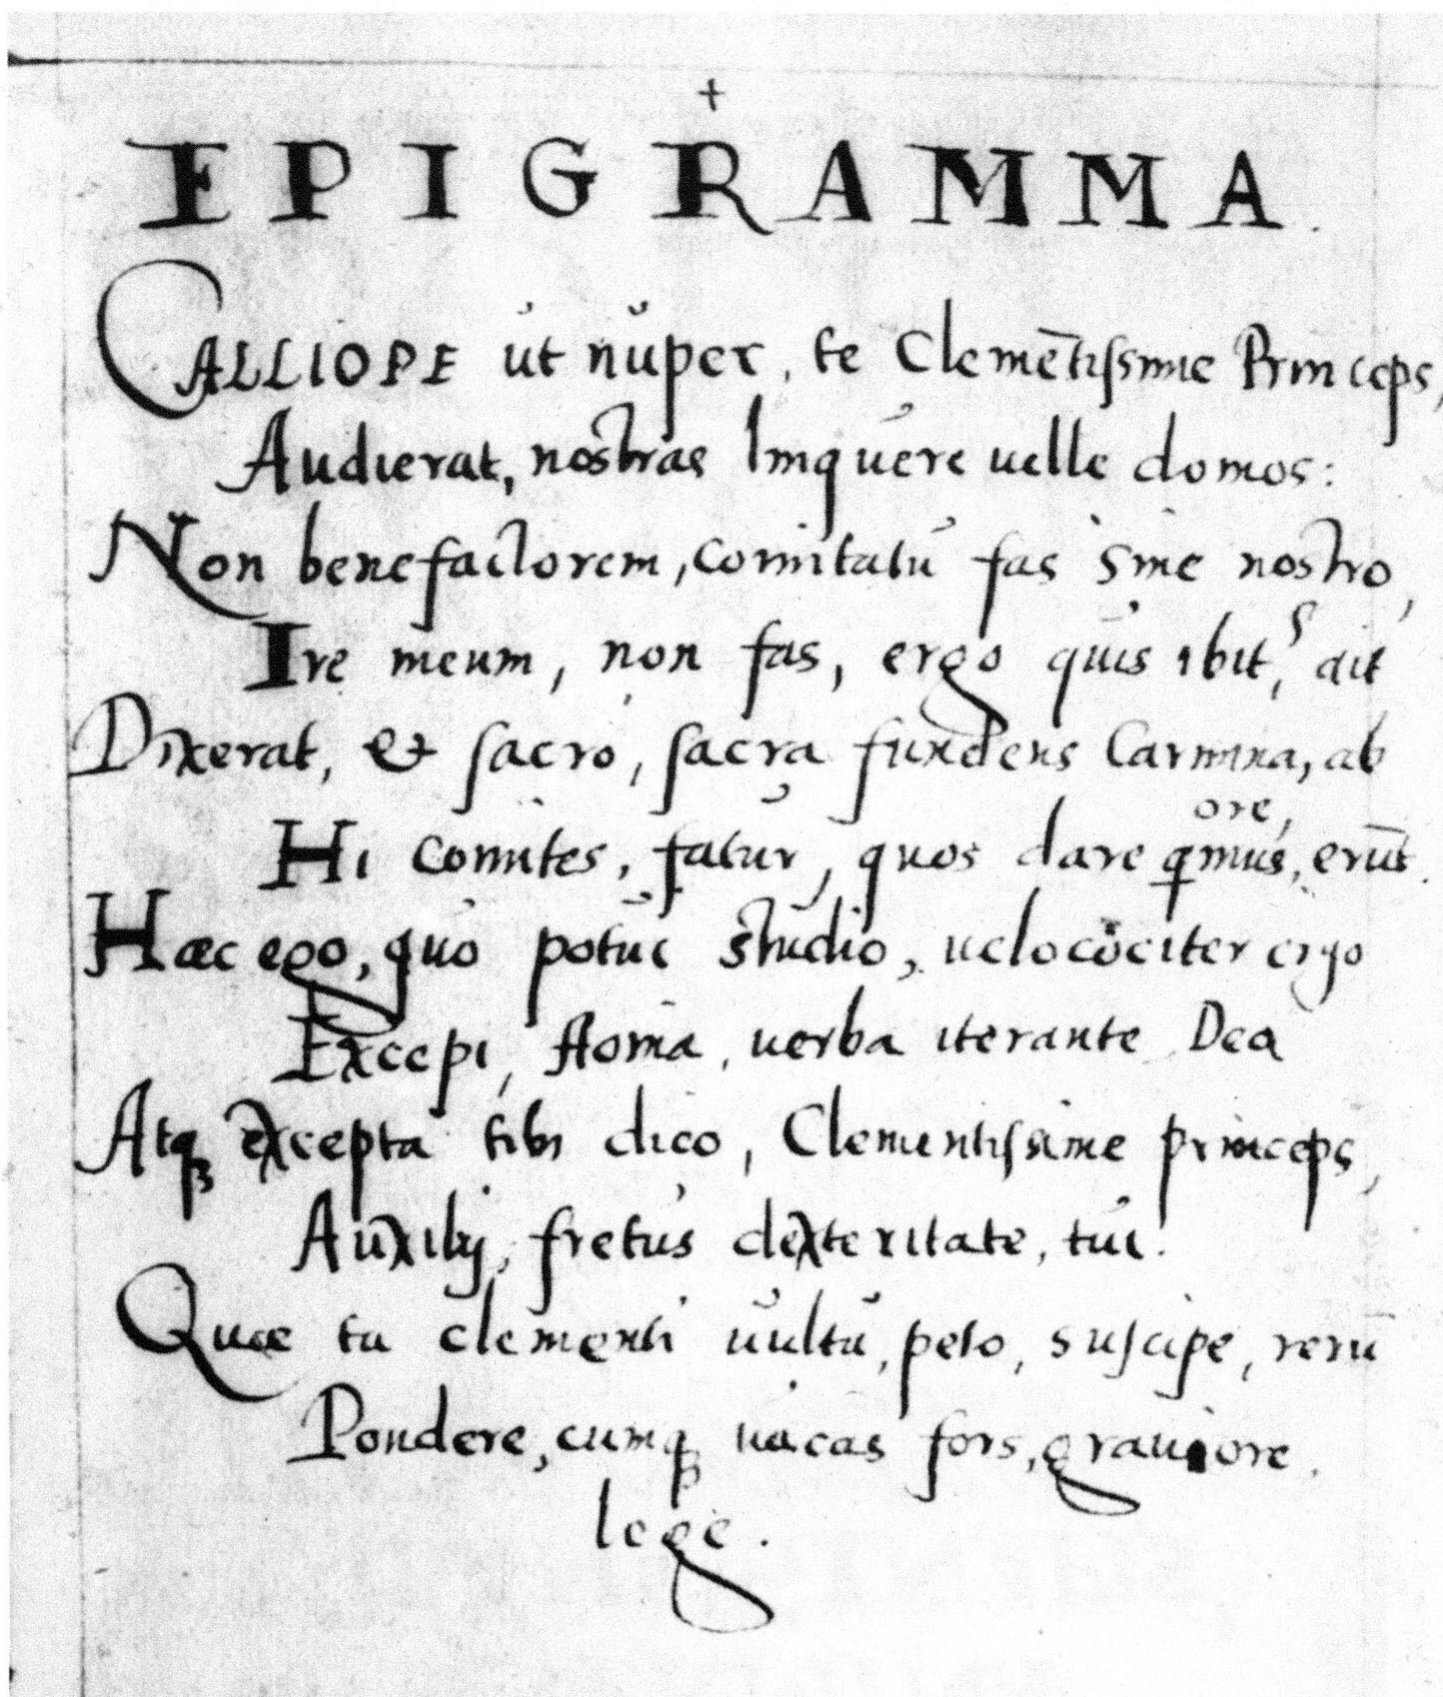 +
EPIGRAMMA.
CALLIOPE ut nuper, te Clemẽtissime Princeps,
Audierat, nostras linquere uelle domos:
Non benefactorem, comitatũ fas sine nostro,
Ire meum, non fas, ergo quis ibit, ait
Dixerat, & sacro, sacra fundens Carmina, ab
ore,
Hi comites, fatur, quos dare qimus, erũt.
Hæc ego, quo potui studio, uelocociter ergo
Excepi, Aonia, uerba iterante Dea
Atqꝫ excepta tibi dico, Clementissime princeps,
Auxilij, fretus dexteritate, tui.
Quæ tu clementi uultu, peto, suscipe, rerũ
Pondere, cumqꝫ uacas fors, grauiore.
lege.